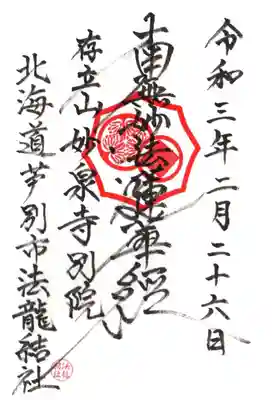 令和三年二月二十六日
南無妙法蓮華経
存立山妙泉寺別院
北海道芦別市法龍結社